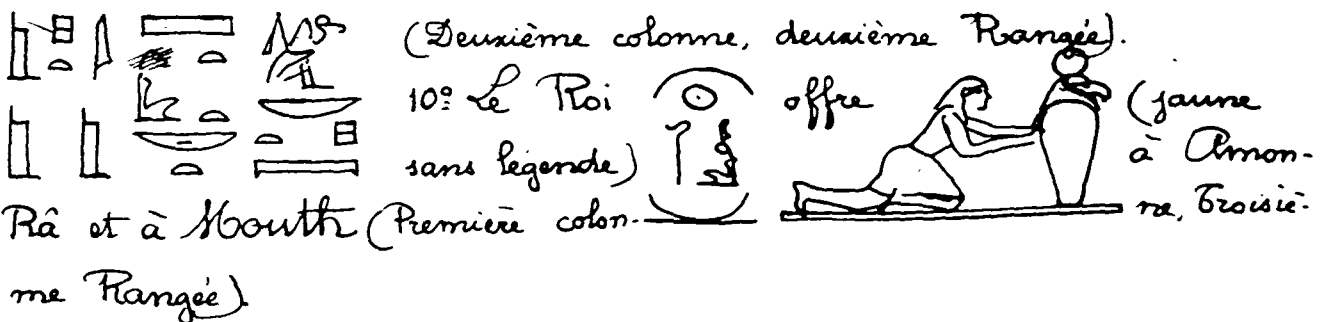 (Deuxième colonne, deuxième Rangée).
10º Le Roi offre (jaune
sans légende) à Amon-
Râ et à Mouth (Première colon- ne, Troisiè-
me Rangée).